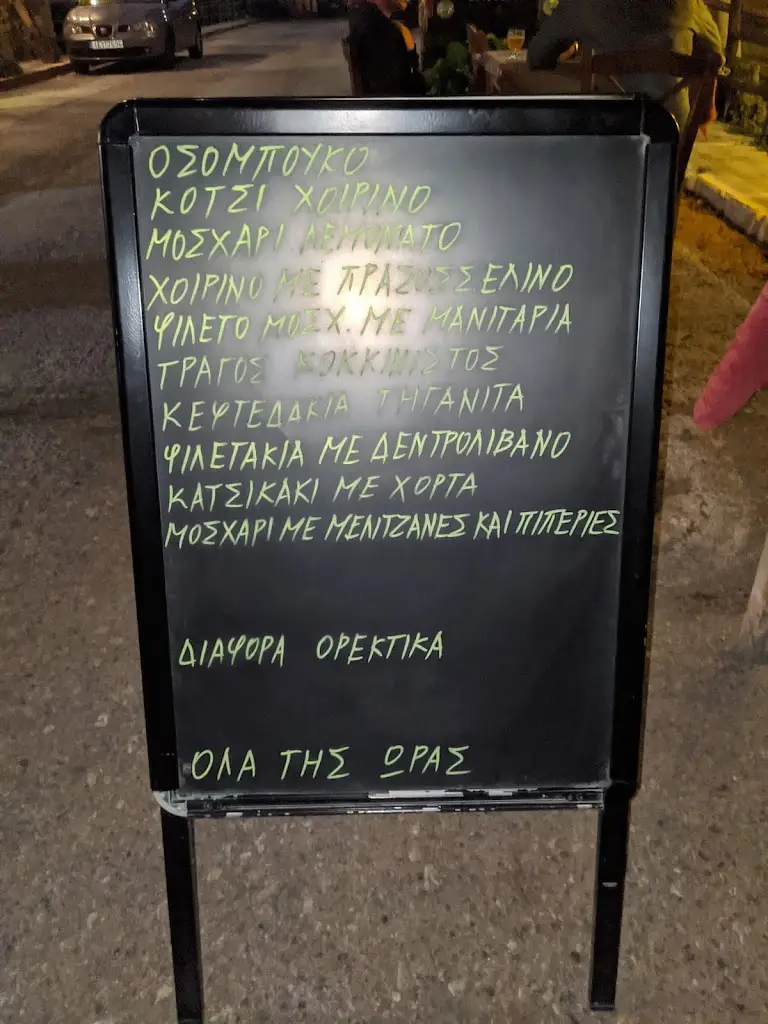 ΟΣΟΜΠΟΥΚΟ
ΚΟΤΣΙ ΧΟΙΡΙΝΟ
ΜΟΣΧΑΡΙ ΛΕΜΟΝΑΤΟ
ΧΟΙΡΙΝΟ ΜΕ ΠΡΑΣΟΣΣΕΛΙΝΟ
ΦΙΛΕΤΟ ΜΟΣΧ. ΜΕ ΜΑΝΙΤΑΡΙΑ
ΤΡΑΓΟΣ ΚΟΚΚΙΝΙΣΤΟΣ
ΚΕΦΤΕΔΑΚΙΑ ΤΗΓΑΝΙΤΑ
ΦΙΛΕΤΑΚΙΑ ΜΕ ΔΕΝΤΡΟΛΙΒΑΝΟ
ΚΑΤΣΙΚΑΚΙ ΜΕ ΧΟΡΤΑ
ΜΟΣΧΑΡΙ ΜΕ ΜΕΝΤΖΑΝΕΣ ΚΑΙ ΠΙΠΕΡΙΕΣ
ΔΙΑΦΟΡΑ ΟΡΕΚΤΙΚΑ
ΟΛΑ ΤΗΣ ΩΡΑΣ